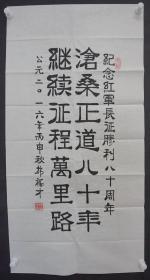 紀念紅軍長征勝利八十周年
滄桑正道八十年
繼续征程萬里路
公元二〇一六年丙申秋